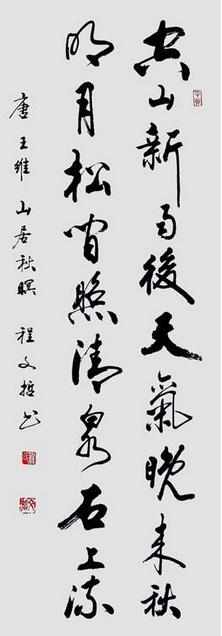 空山新雨後天氣晚来秋
明月松间照清泉石上流
唐王維山居秋暝 程文哲书